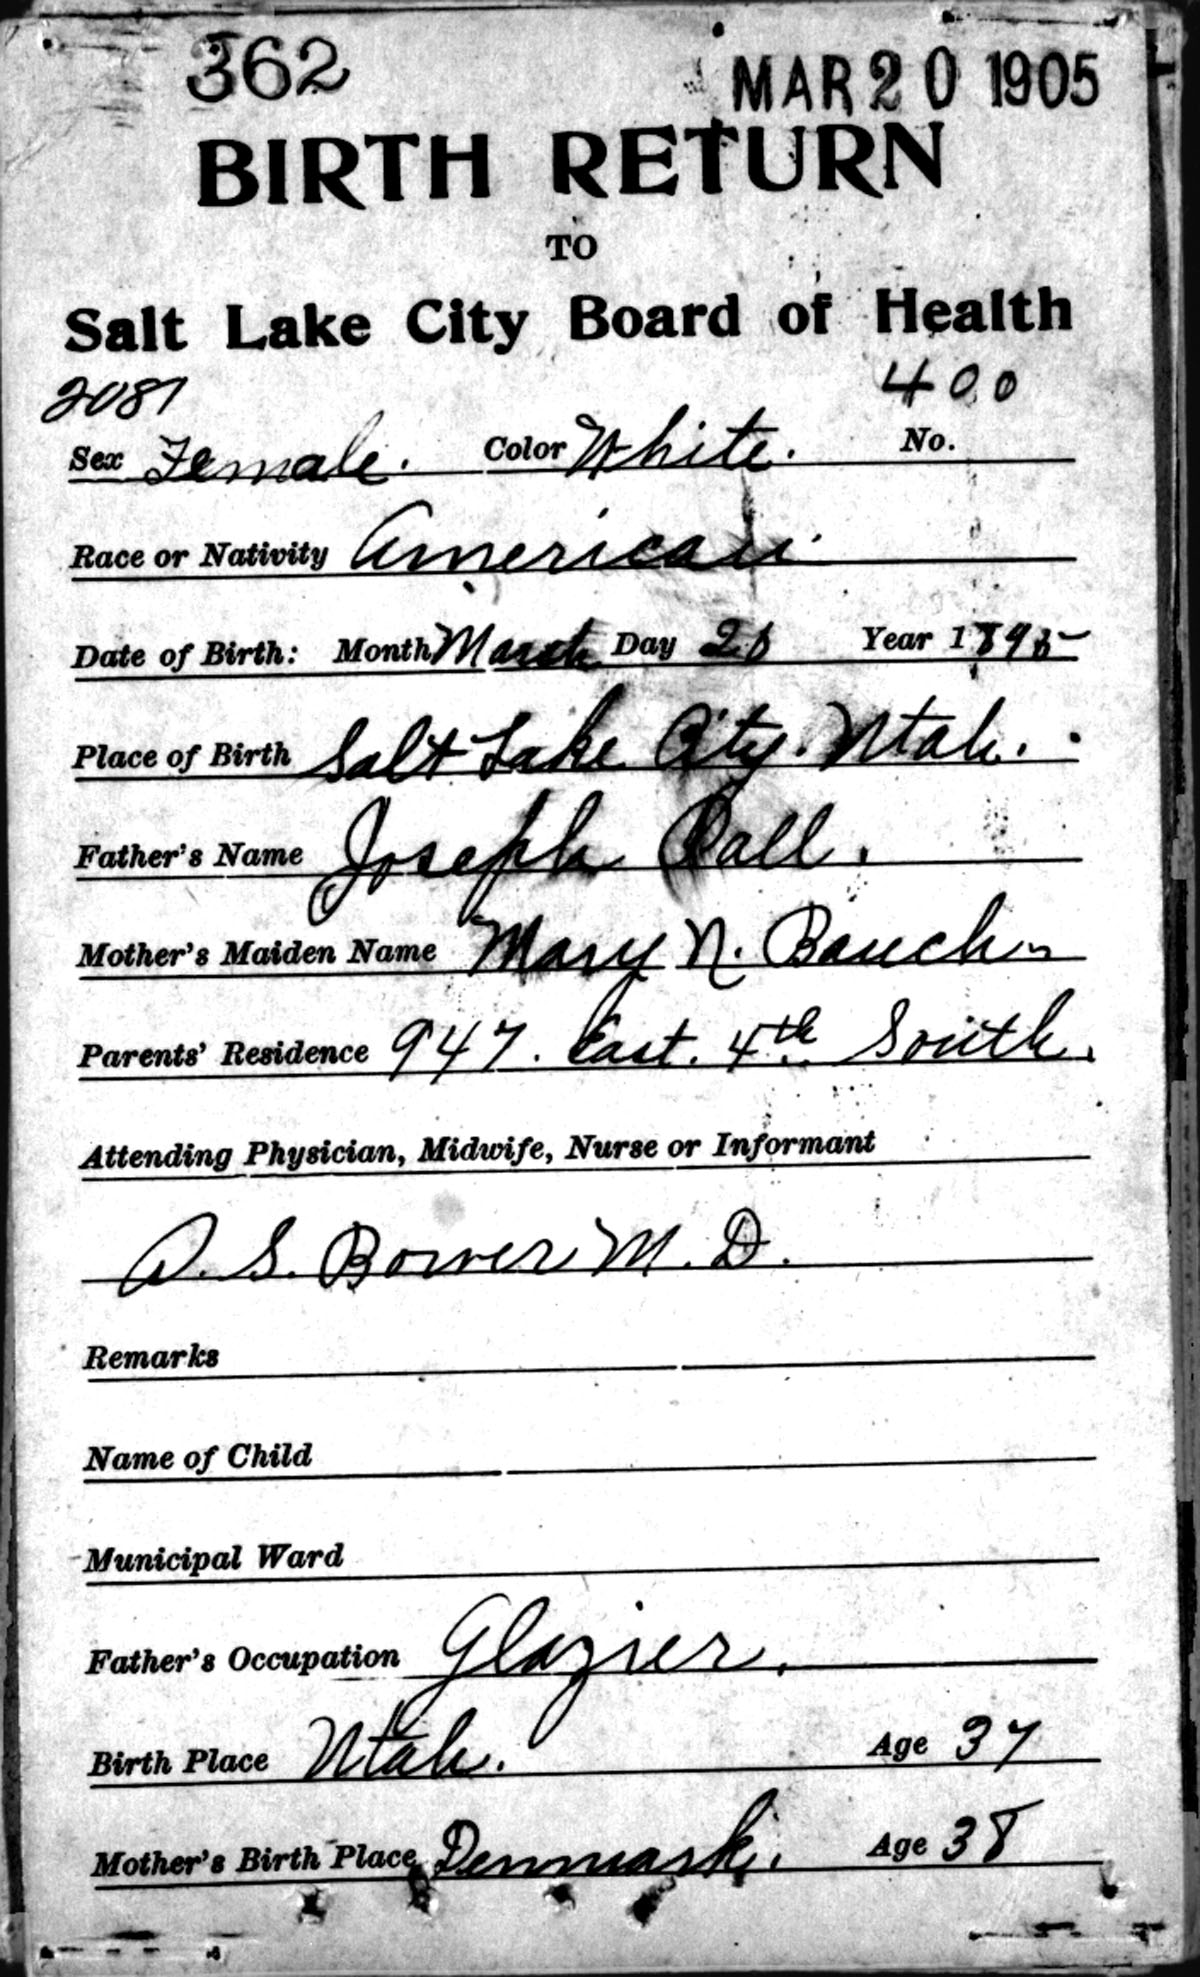 362 MAR 20 1905
BIRTH RETURN
TO
Salt Lake City Board of Health
2087 400
Sex Female. Color White. No.
Race or Nativity American
Date of Birth: Month March Day Year 1
Place of Birth Salt Lake City. Utah.
Father's Name Joseph
Mother's Maiden Name Mary N.
Parents' Residence 947. East. 4th South.
Attending Physician, Midwife, Nurse or Informant
S. Bower M. D.
Remarks
Name of Child
Municipal Ward
Father's Occupation Glazier.
Birth Place Utah. Age 37
Mother's Birth Place Denmark. Age 38